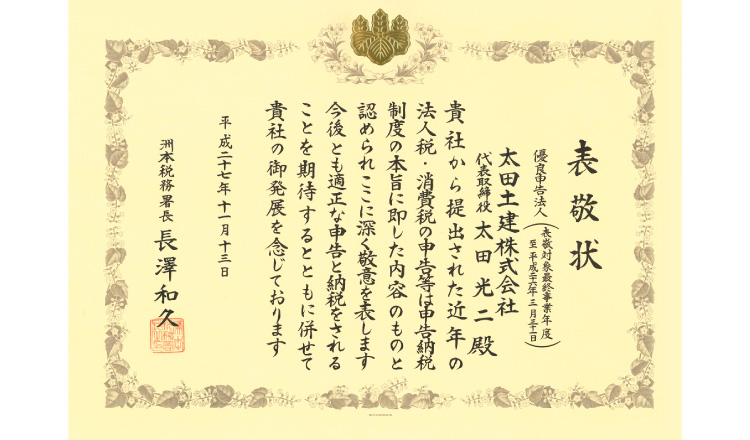 表敬状
優良申告法人
（表敬対象最終事業年度
至 平成二十六年 三月三十一日）
太田土建株式会社
代表取締役 太田光二殿
貴社から提出された近年の
法人税・消費税の申告等は申告納税
制度の本旨に即した内容のものと
認められここに深く敬意を表します
今後とも適正な申告と納税をされる
ことを期待するとともに併せて
貴社の御発展を念じております
平成二十七年十一月十三日
洲本税務署長 長澤和久